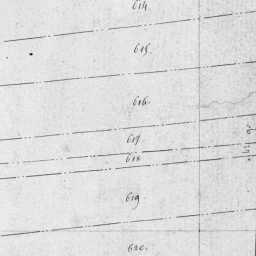 614.
615.
616.
617.
618
619
620.